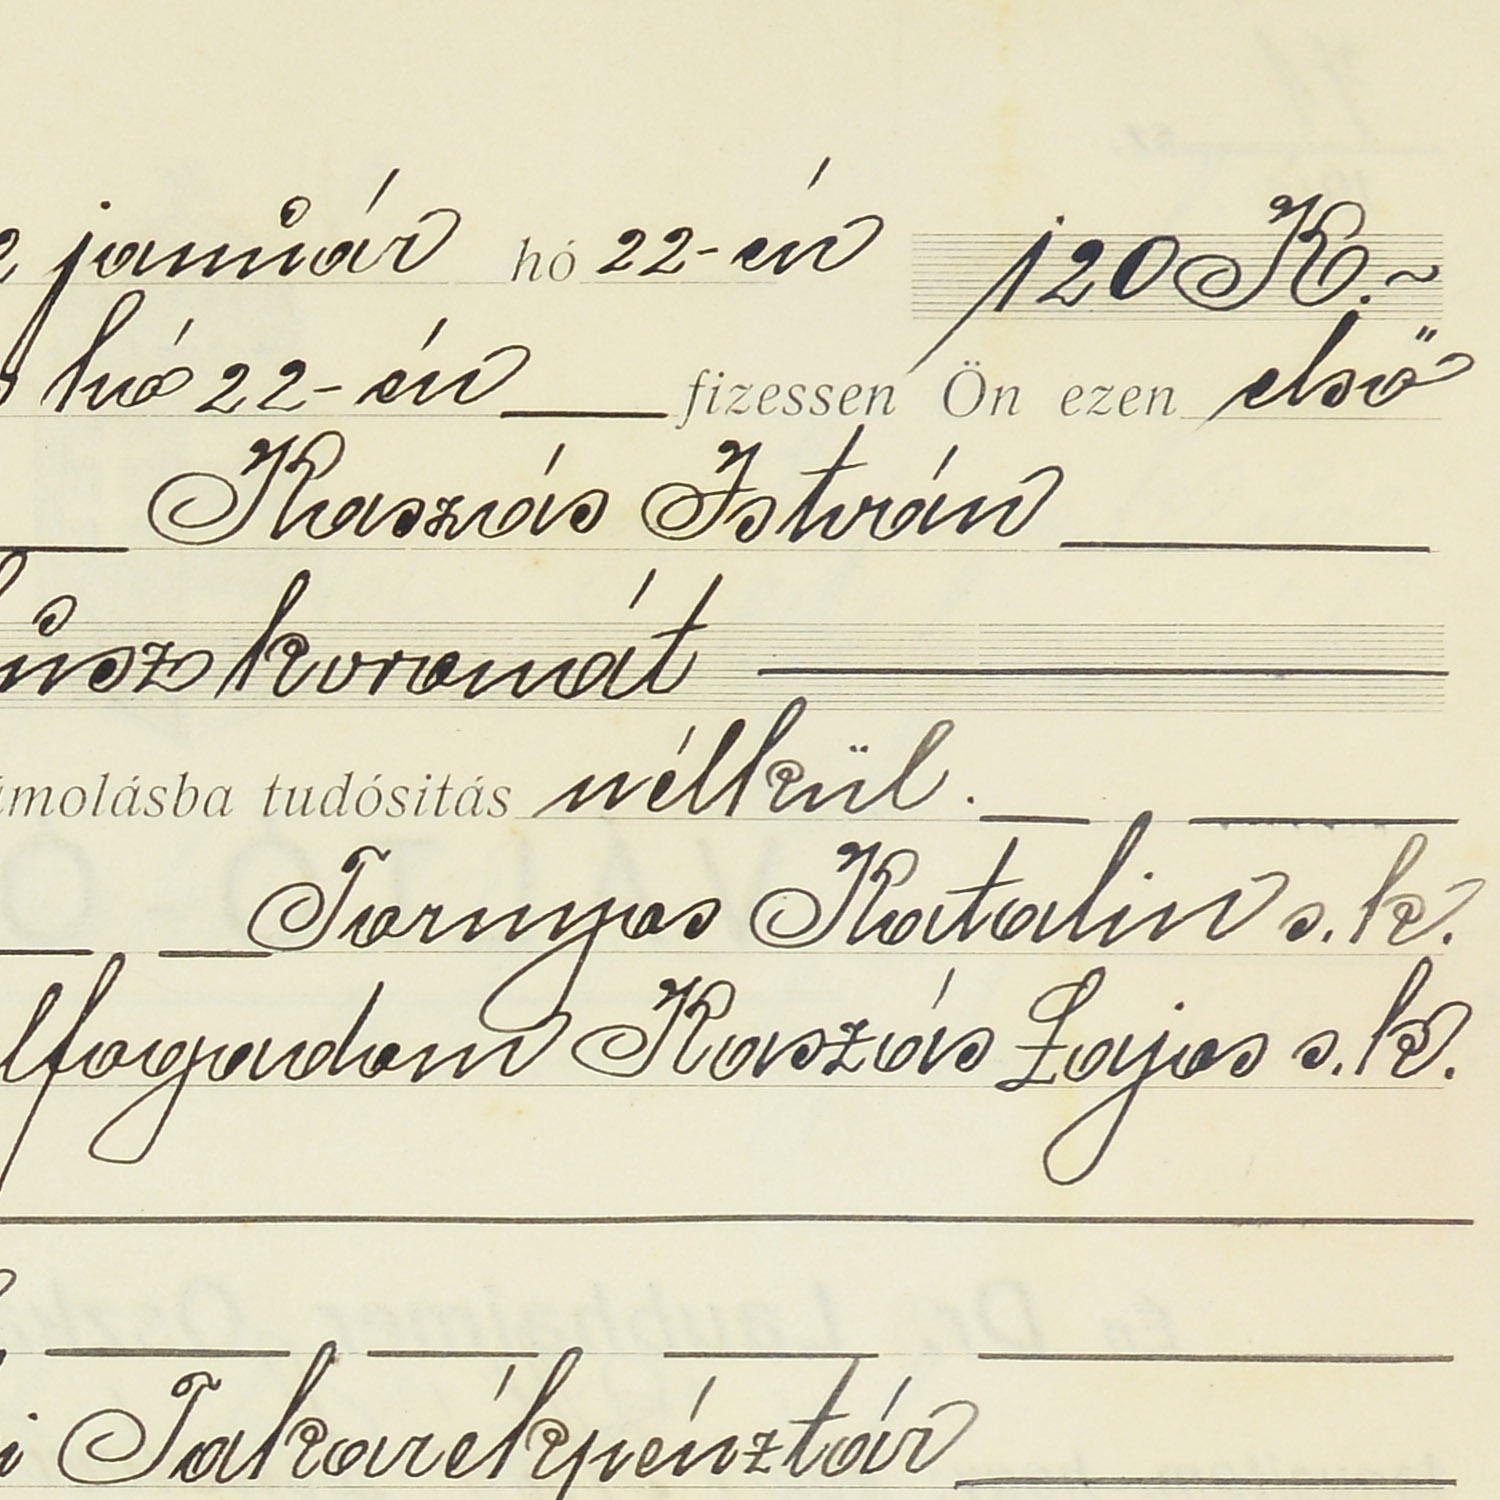 január hó 22-én 120 K.~
hó 22-én fizessen Ön ezen első
Kaszás István
húsz koronát
ámolásba tudósitás nélkül.
Tornyos Katalin s.k.
elfogadom Kaszás Lajos s.k.
i Takarékpénztár